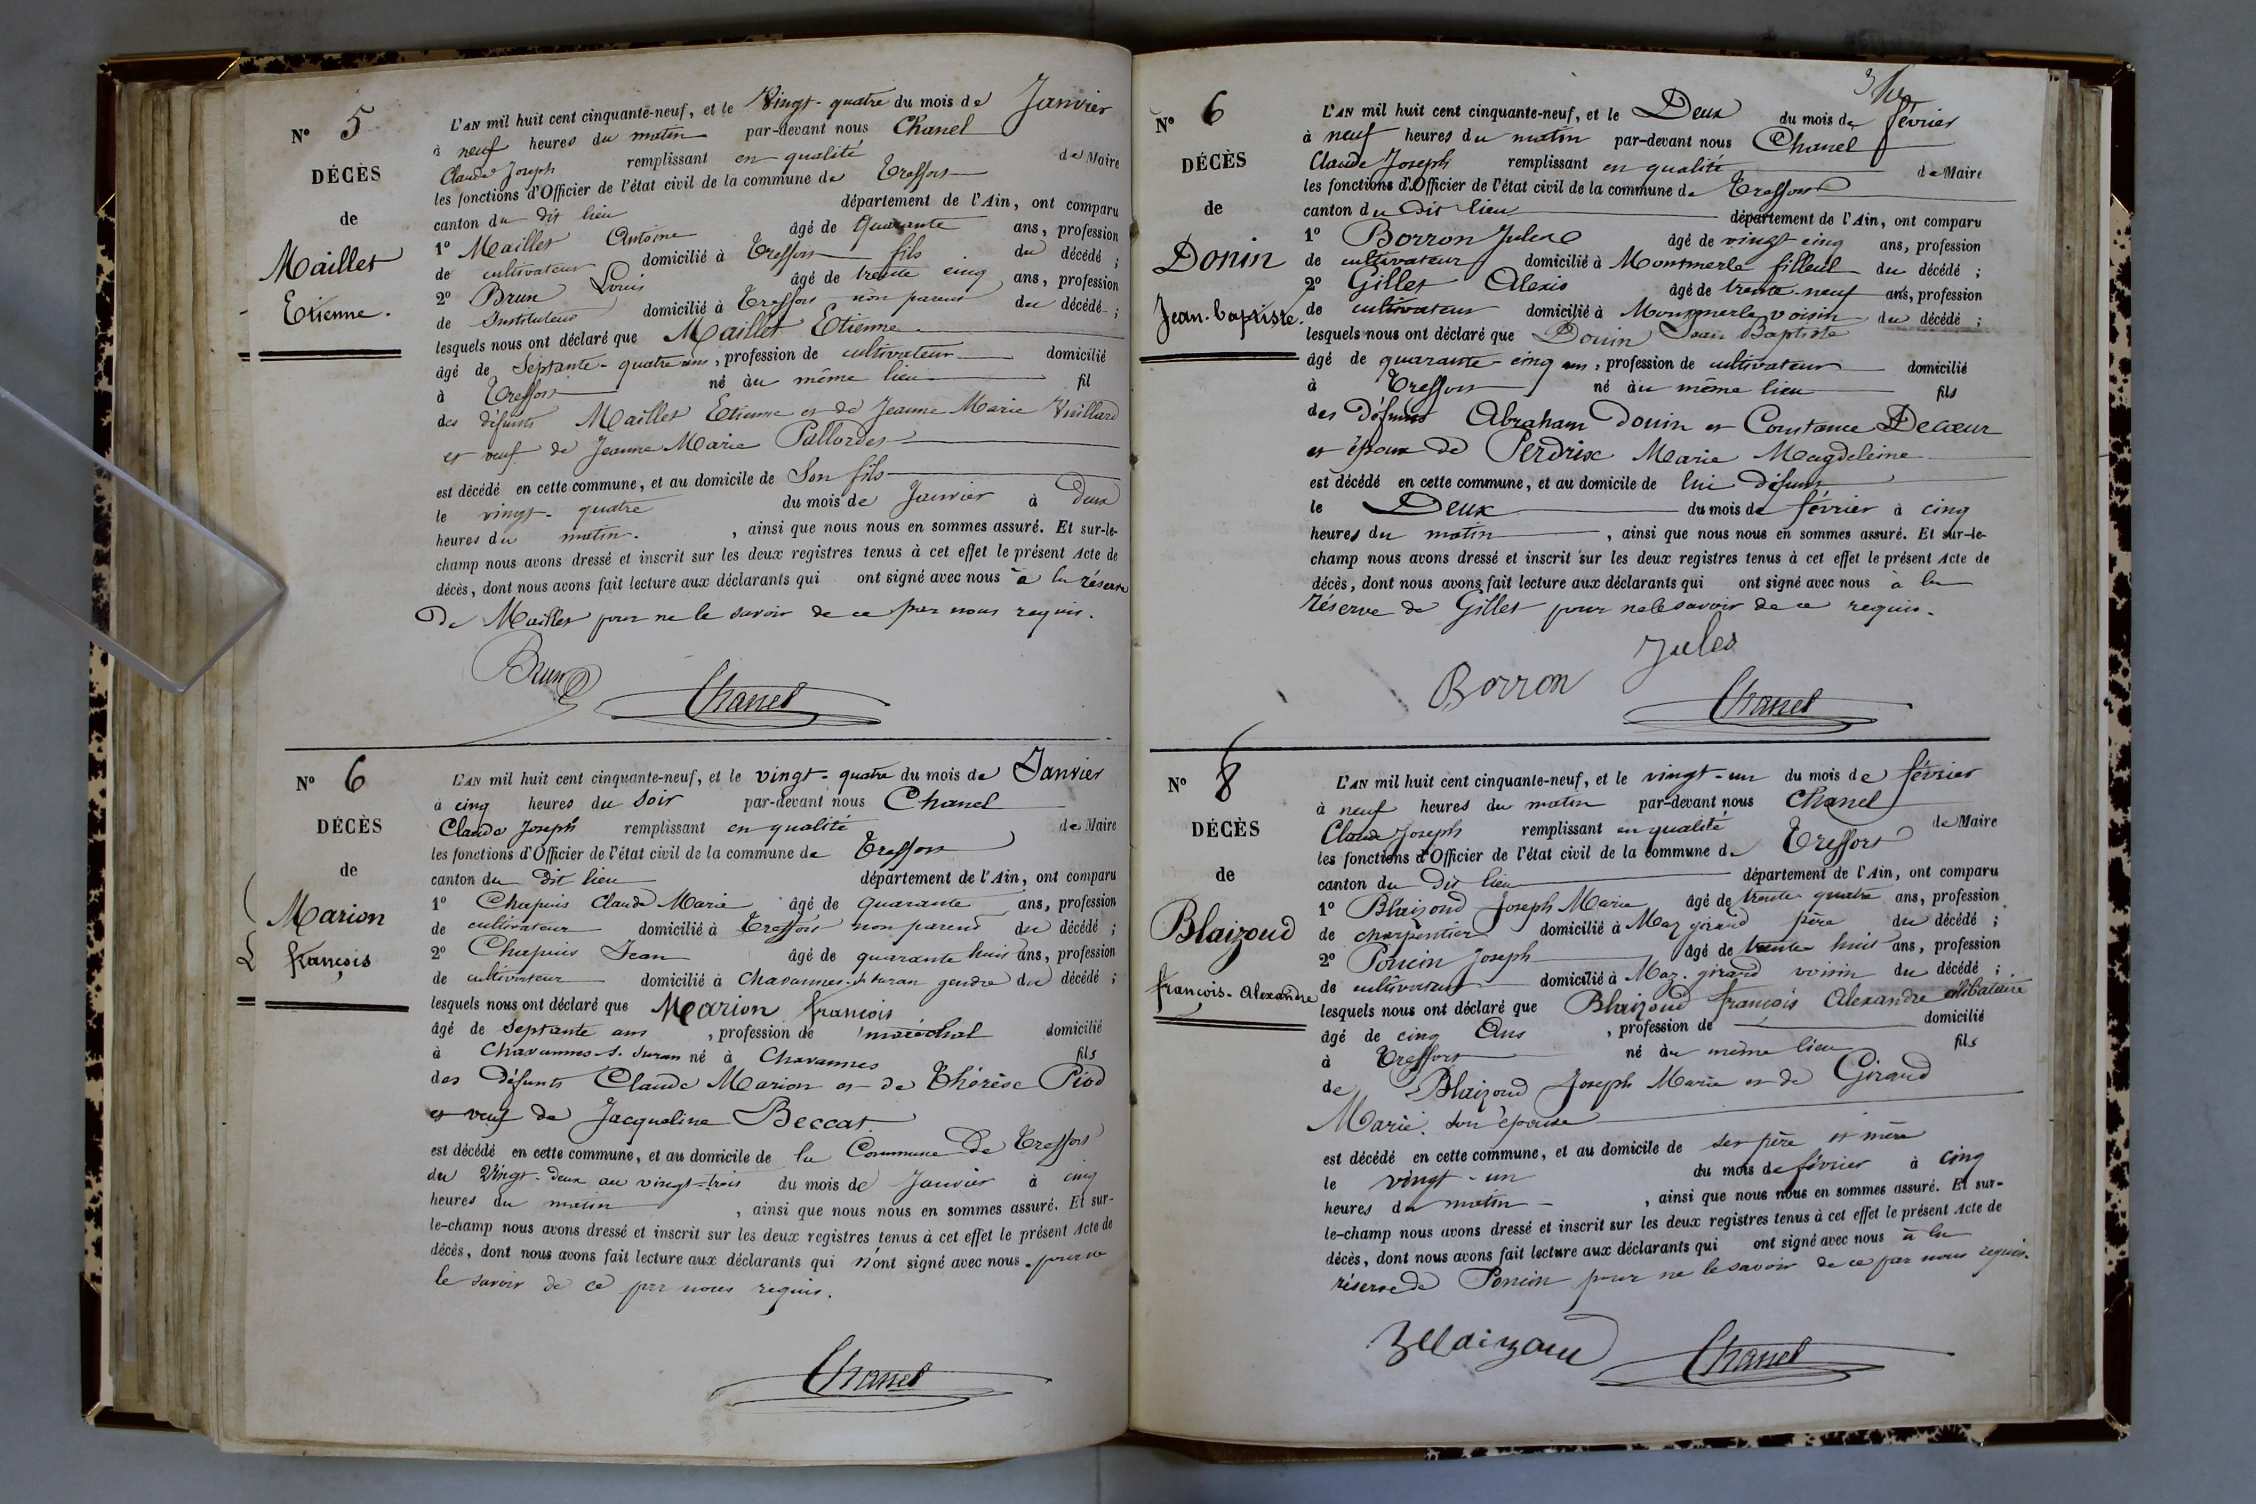 N° 5
DÉCÈS
de
Maillet
Etienne.
L'AN mil huit cent cinquante-neuf, et le Vingt-quatre du mois de Janvier
à neuf heures du matin par-devant nous Chanel
Claude Joseph remplissant en qualité de Maire
les fonctions d'Officier de l'état civil de la commune de Treffort
canton du dit lieu département de l'Ain, ont comparu
1° Maillet Antoine âgé de Quarante ans, profession
de cultivateur domicilié à Treffort fils du décédé ;
2° Brun Louis âgé de trente cinq ans, profession
de Instituteur domicilié à Treffort non parent du décédé ;
lesquels nous ont déclaré que Maillet Etienne
âgé de Septante-quatre ans, profession de cultivateur domicilié
à Treffort né au même lieu fil
des défunts Maillet Etienne et de Jeanne Marie Vuillard
et veuf de Jeanne Marie Pallordet
est décédé en cette commune, et au domicile de Son fils
le vingt-quatre du mois de Janvier à Deux
heures du matin. , ainsi que nous nous en sommes assuré. Et sur-le-
champ nous avons dressé et inscrit sur les deux registres tenus à cet effet le présent Acte de
décès, dont nous avons fait lecture aux déclarants qui ont signé avec nous à la réserve
De Maillet pour ne le savoir de ce par nous requis.
Brun
Chanel
N° 6
DÉCÈS
de
Marion
françois
L'AN mil huit cent cinquante-neuf, et le vingt-quatre du mois de Janvier
à cinq heures du soir par-devant nous Chanel
Claude Joseph remplissant en qualité de Maire
les fonctions d'Officier de l'état civil de la commune de Treffort
canton du dit lieu département de l'Ain, ont comparu
1° Chapuis Claude Marie âgé de quarante ans, profession
de cultivateur domicilié à Treffort non parent du décédé ;
2° Chapuis Jean âgé de quarante huit ans, profession
de cultivateur domicilié à Chavannes-s-suran gendre du décédé ;
lesquels nous ont déclaré que Marion françois
âgé de Septante ans , profession de maréchal domicilié
à Chavannes-s-suran né à Chavannes fils
des défunts Claude Marion et de Thérèse Piod
et veuf de Jacqueline Beccat.
est décédé en cette commune, et au domicile de la Commune De Treffort
du Vingt-deux au vingt-trois du mois de Janvier à cinq
heures du matin , ainsi que nous nous en sommes assuré. Et sur-
le-champ nous avons dressé et inscrit sur les deux registres tenus à cet effet le présent Acte de
décès, dont nous avons fait lecture aux déclarants qui n'ont signé avec nous. pour ne
le savoir de ce par nous requis.
Chanel
N° 6
DÉCÈS
de
Donin
Jean-baptiste.
L'AN mil huit cent cinquante-neuf, et le Deux du mois de février
à neuf heures du matin par-devant nous Chanel
Claude Joseph remplissant en qualité de Maire
les fonctions d'Officier de l'état civil de la commune de Treffort
canton du Dit lieu département de l'Ain, ont comparu
1° Borron Jules âgé de vingt-cinq ans, profession
de cultivateur domicilié à Montmerle filleul du décédé ;
2° Gillet Alexis âgé de trente-neuf ans, profession
de cultivateur domicilié à Montmerle voisin du décédé ;
lesquels nous ont déclaré que Donin Jean Baptiste
âgé de quarante-cinq ans, profession de cultivateur domicilié
à Treffort né au même lieu fils
des Défunts Abraham Donin et Constance Decœur
et époux de Perdrix Marie Magdeleine
est décédé en cette commune, et au domicile de lui Défunt
le Deux du mois de février à cinq
heures du matin , ainsi que nous nous en sommes assuré. Et sur-le-
champ nous avons dressé et inscrit sur les deux registres tenus à cet effet le présent Acte de
décès, dont nous avons fait lecture aux déclarants qui ont signé avec nous à la
réserve de Gillet pour ne le savoir de ce requis.
Borron Jules
Chanel
N° 8
DÉCÈS
de
Blaizoud
françois-Alexandre
L'AN mil huit cent cinquante-neuf, et le vingt-un du mois de février
à neuf heures du matin par-devant nous Chanel
Claude Joseph remplissant en qualité de Maire
les fonctions d'Officier de l'état civil de la commune de Treffort
canton du Dit lieu département de l'Ain, ont comparu
1° Blaizoud Joseph Marie âgé de trente quatre ans, profession
de charpentier domicilié à Maz girard père du décédé ;
2° Poncin Joseph âgé de trente huit ans, profession
de cultivateur domicilié à Maz-girard voisin du décédé ;
lesquels nous ont déclaré que Blaizoud françois Alexandre célibataire
âgé de cinq Ans , profession de domicilié
à Treffort né au même lieu fils
de Blaizoud Joseph Marie et de Girard
Marie. son épouse
est décédé en cette commune, et au domicile de ses père et mère
le vingt-un du mois de février à cinq
heures du matin , ainsi que nous nous en sommes assuré. Et sur-
le-champ nous avons dressé et inscrit sur les deux registres tenus à cet effet le présent Acte de
décès, dont nous avons fait lecture aux déclarants qui ont signé avec nous à la
réserve de Poncin pour ne le savoir de ce par nous requis.
Chanel